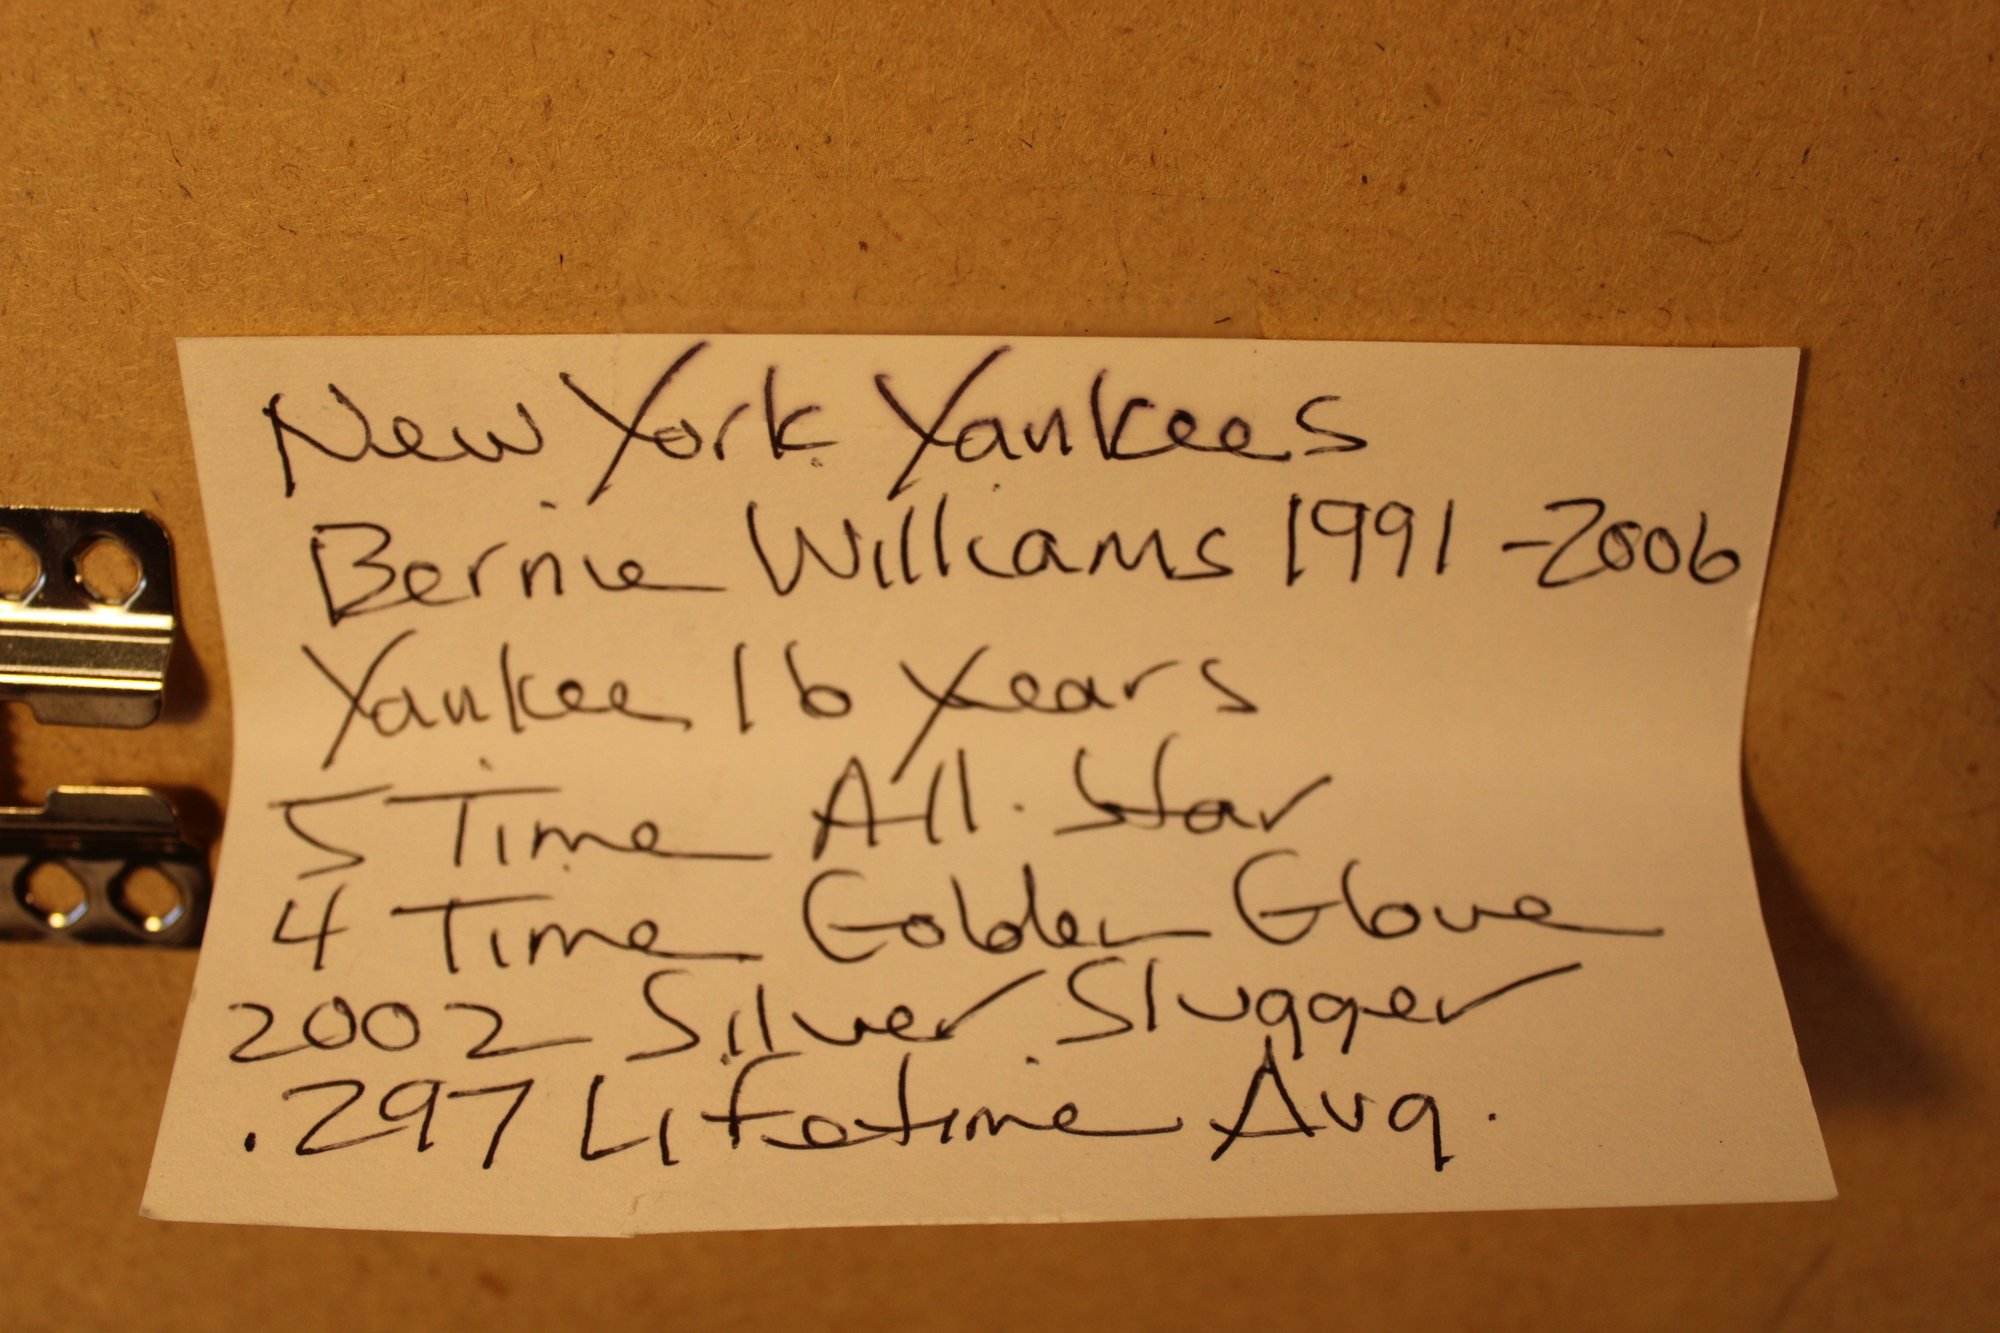 New York Yankees
Bernie Williams 1991-2006
Yankee 16 Years
5 Time All. Star
4 Time Golden Glove
2002 Silver Slugger
.297 Lifetime Avg.